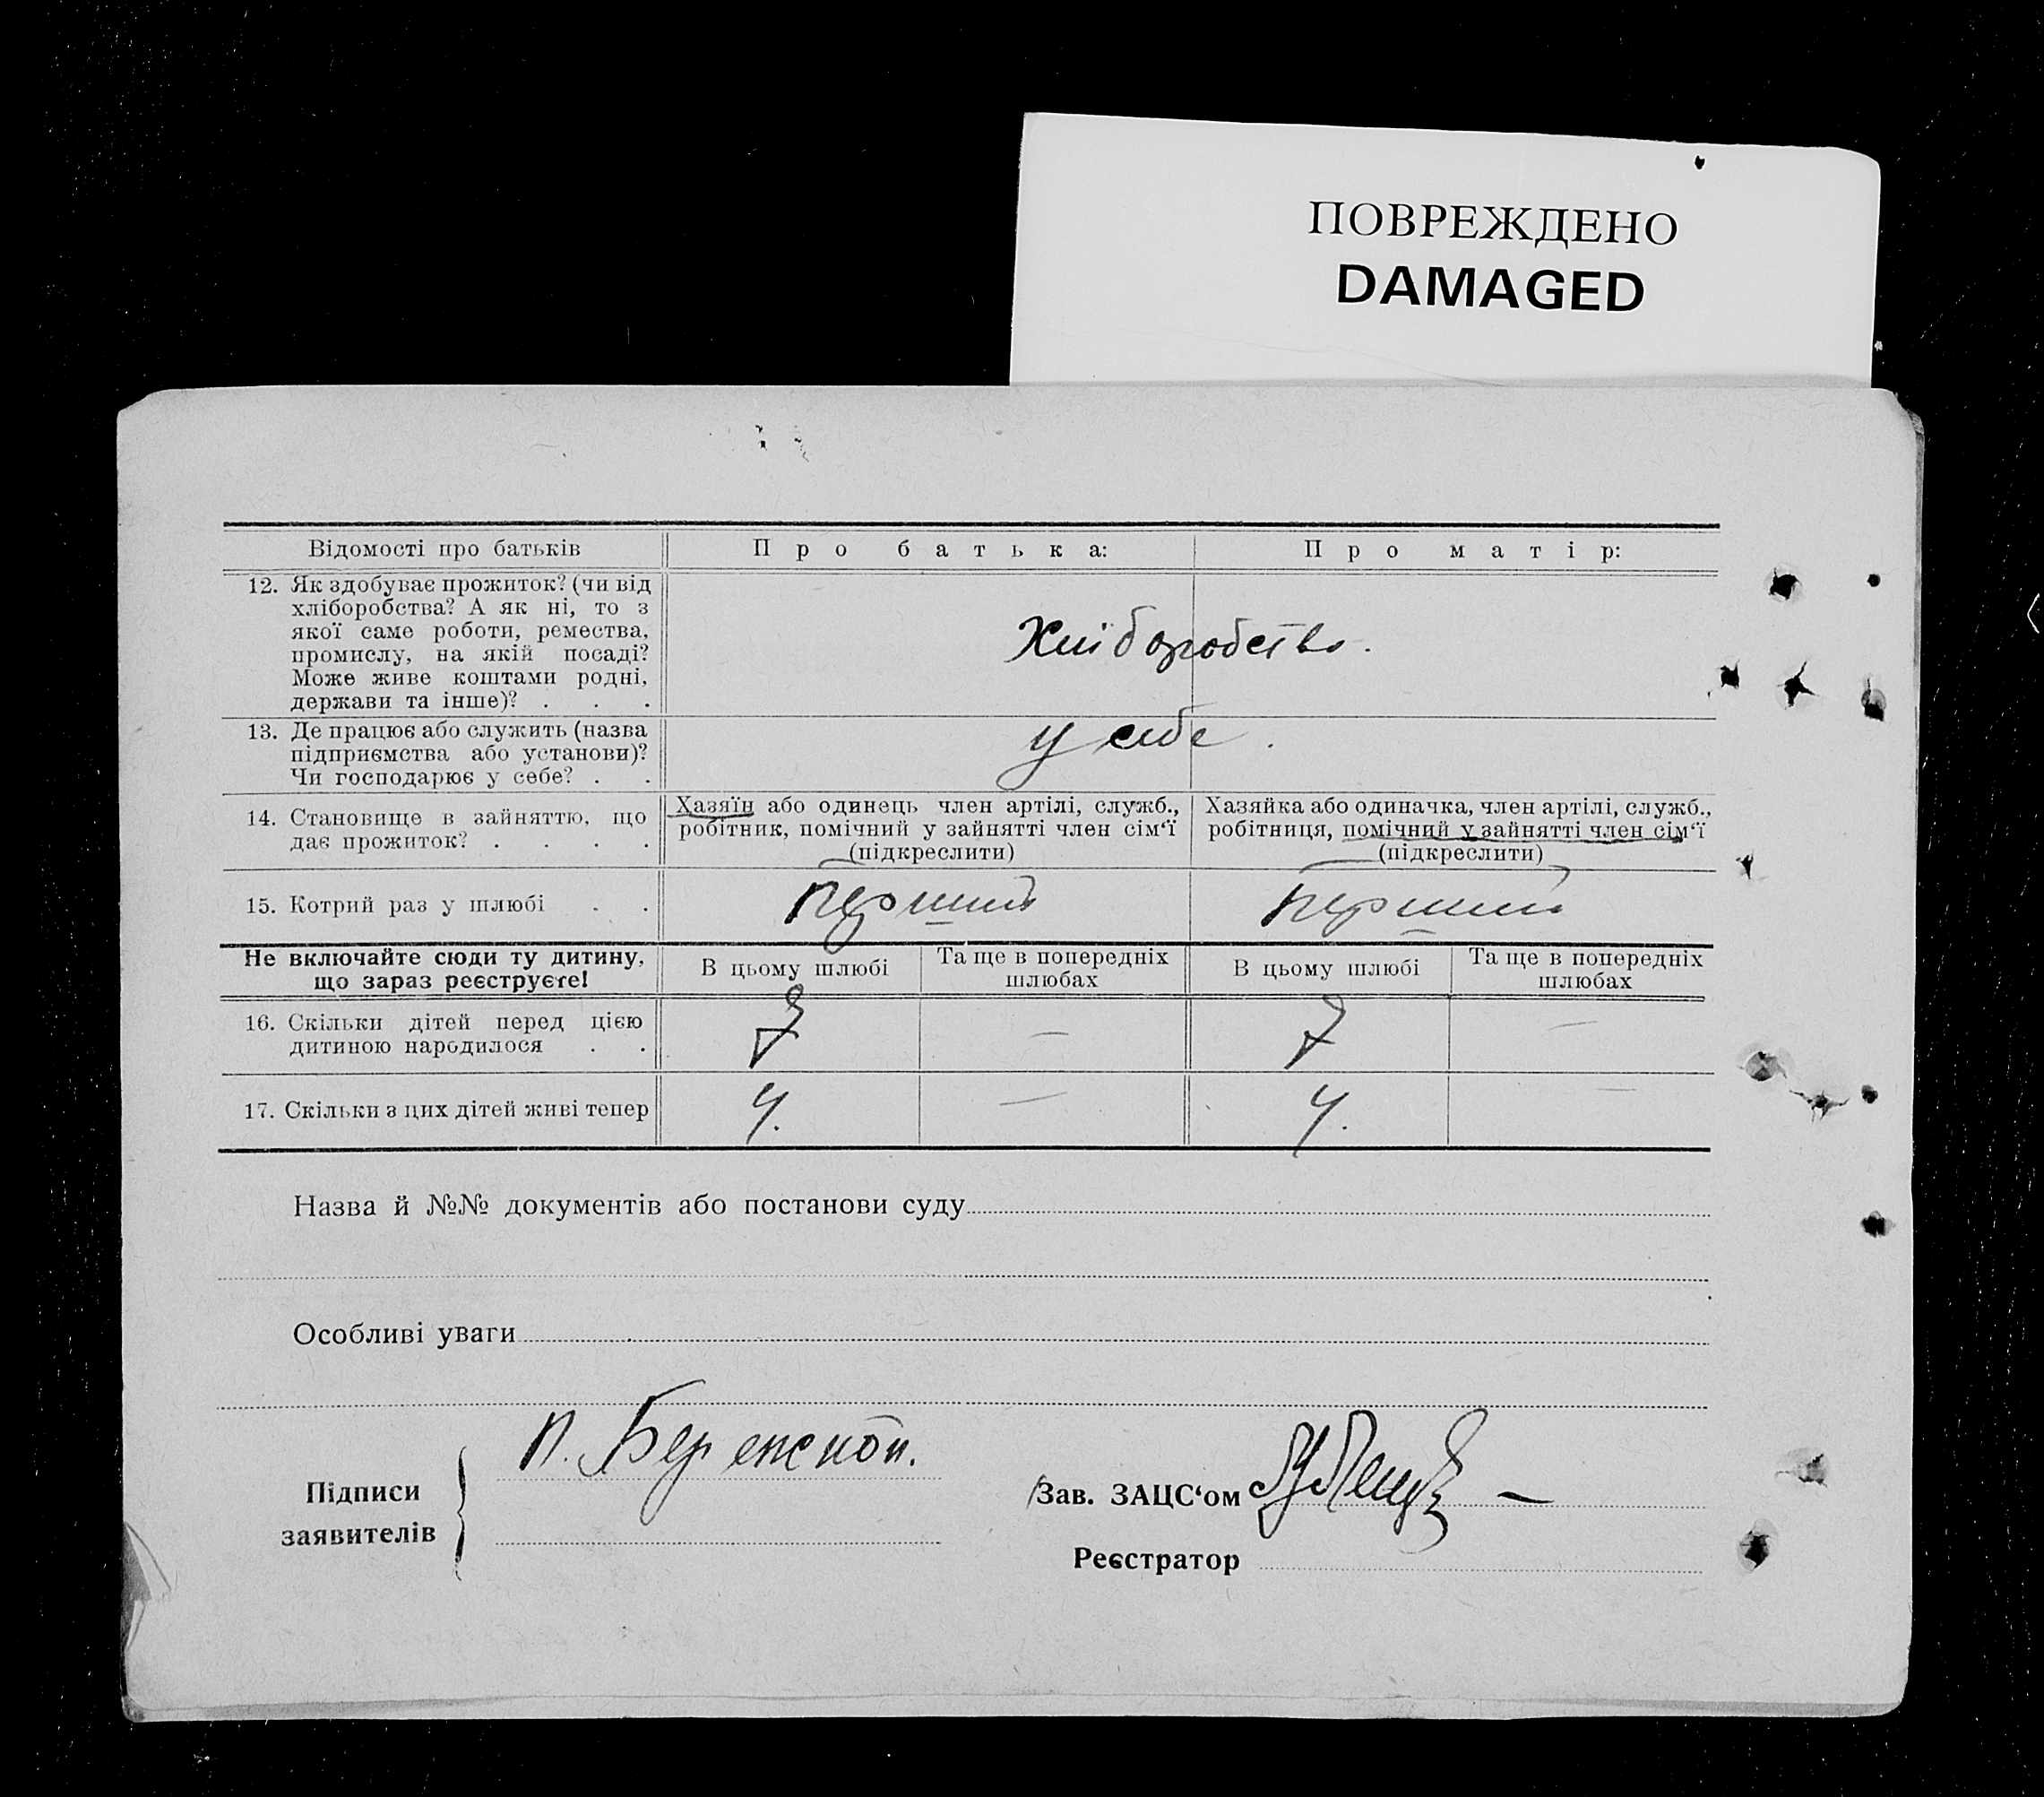 ПОВРЕЖДЕНО
DAMAGED
Відомості про батьків
Про батька:
Про матір:
12. Як здобуває прожиток? (чи від
хліборобства? А як ні, то з
якої саме роботи, ремества,
промислу, на якій посаді?
Може живе коштами родні,
держави та інше)? . . .
Хліборобство.
13. Де працює або служить (назва
підприємства або установи)?
Чи господарює у себе? . .
у себе.
14. Становище в зайняттю, що
дає прожиток? . . . .
Хазяїн або одинець член артілі, служб.,
робітник, помічний у зайнятті член сім‘ї
(підкреслити)
Хазяйка або одиначка, член артілі, служб.,
робітниця, помічний у зайнятті член сім‘ї
(підкреслити)
15. Котрий раз у шлюбі . .
перший
перший
Не включайте сюди ту дитину,
що зараз реєструєте!
В цьому шлюбі
Та ще в попередніх
шлюбах
В цьому шлюбі
Та ще в попередніх
шлюбах
16. Скільки дітей перед цією
дитиною народилося . .
7
—
7
—
17. Скільки з цих дітей живі тепер
4.
—
4.
—
Назва й №№ документів або постанови суду
Особливі уваги
Підписи
заявителів
П. Бережной.
Зав. ЗАЦС‘ом
Реєстратор